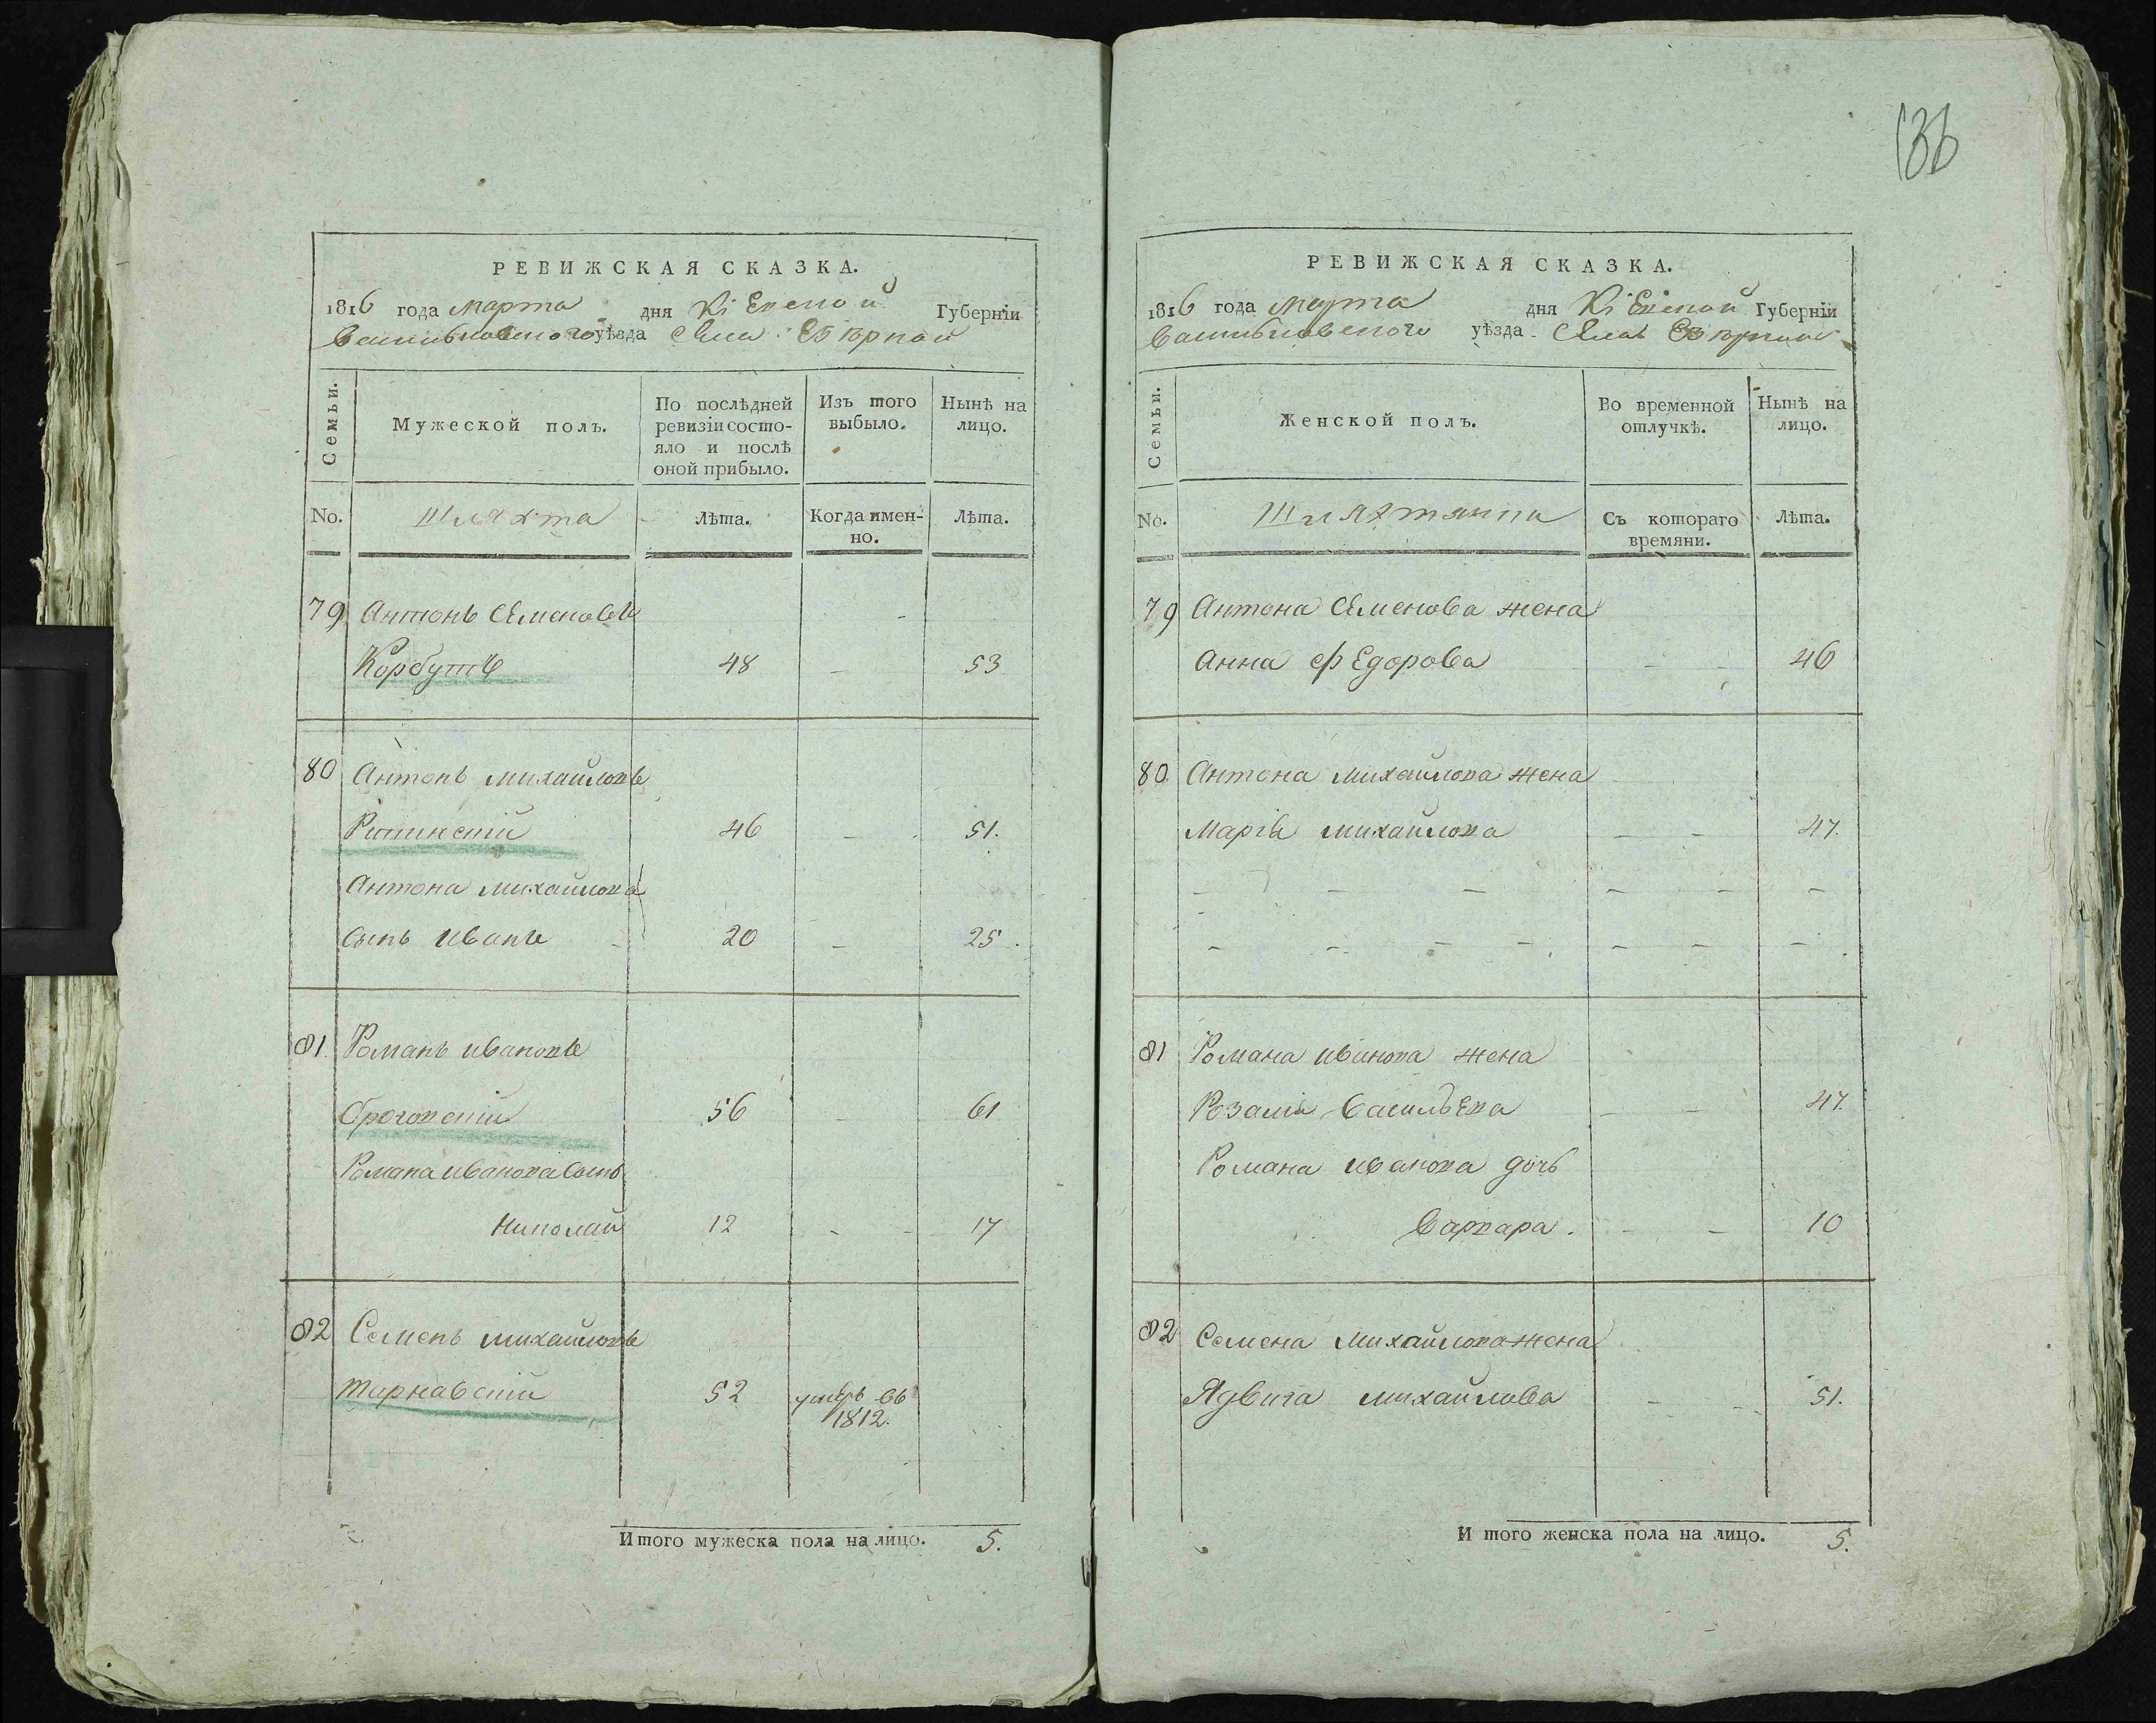 136
РЕВИЖСКАЯ СКАЗКА.
1816 года марта дня Кіевской Губерніи
Васильковского уѣзда села
Семьи.
Мужеской полъ.
По послѣдней ревизіи состояло и послѣ оной прибыло.
Изъ того выбыло.
Нынѣ на лицо.
No.
Шляхта
Лѣта.
Когда именно.
Лѣта.
79 Антонъ Семеновъ
Корбутъ 48 — 53
80 Антонъ Михайловъ
46 — 51.
Антона Михайлова
сынъ Иванъ 20 — 25.
81 Романъ Ивановъ
56 — 61
Романа Иванова сынъ
Николай 12 - - 17
82 Семенъ Михайловъ
Тарнавскій 52 умеръ въ
1812.
Итого мужеска пола на лицо. 5.
РЕВИЖСКАЯ СКАЗКА.
1816 года Марта дня Кіевской Губерніи
Васильковского уѣзда села
Семьи.
Женской полъ.
Во временной отлучкѣ.
Нынѣ на лицо.
No.
Шляхтянки
Съ котораго времяни.
Лѣта.
79 Антона Семенова жена
Анна Федорова — — 46
80 Антона Михайлова жена
Марія Михайлова — — 47.
81 Романа Иванова жена
Розалія Васильева — — 47.
Романа Иванова дочь
Варвара. — — 10
82 Семена Михайлова жена
Ядвига Михайлова — — 51.
И того женска пола на лицо. 5.